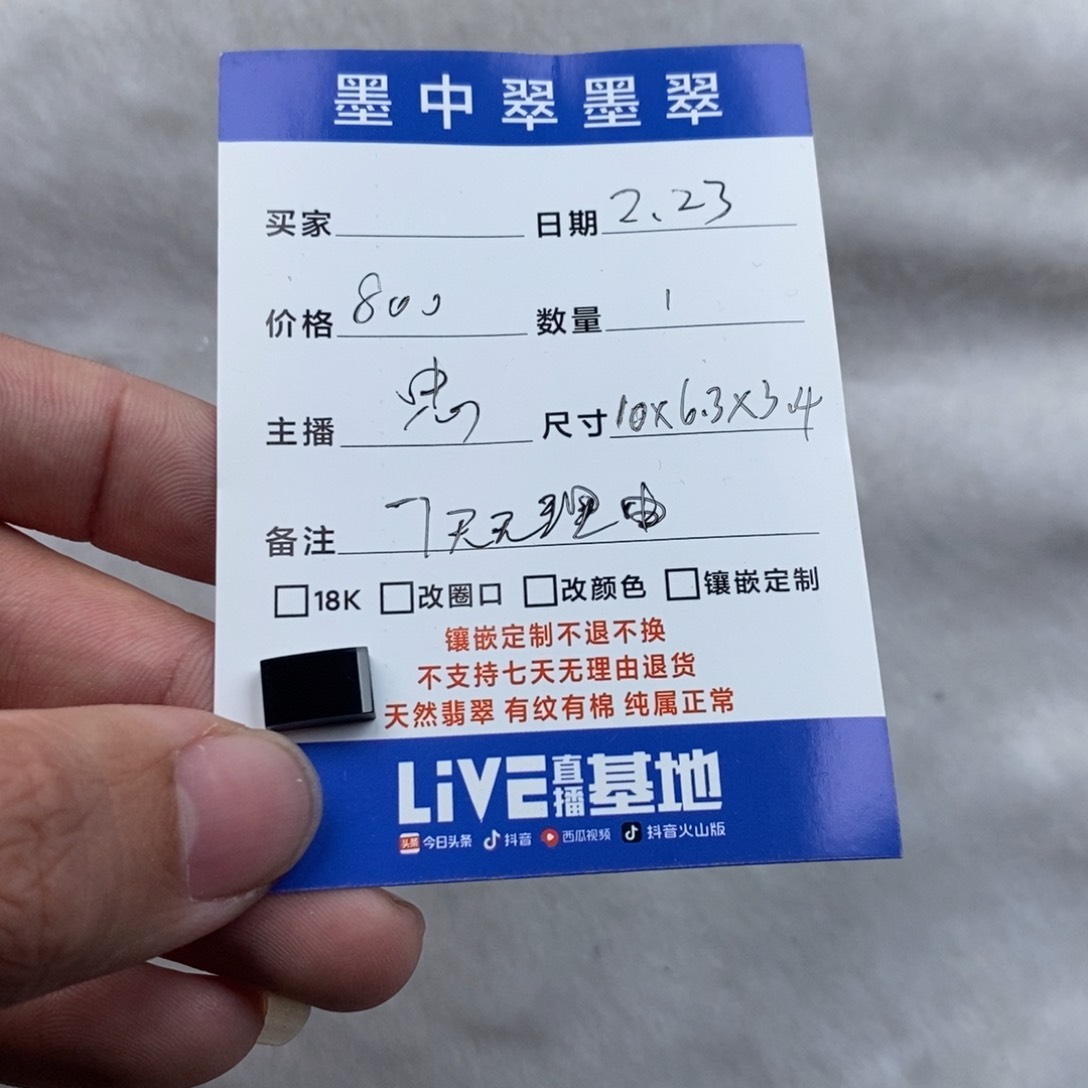 墨中翠墨翠
买家 日期 2.23
价格 800 数量 1
主播 忠 尺寸 10x6.3x3.4
备注 7天无理由
18K 改圈口 改颜色 镶嵌定制
镶嵌定制不退不换
不支持七天无理由退货
天然翡翠 有纹有棉 纯属正常
LiVE直播基地
头条 今日头条 抖音 西瓜视频 抖音火山版